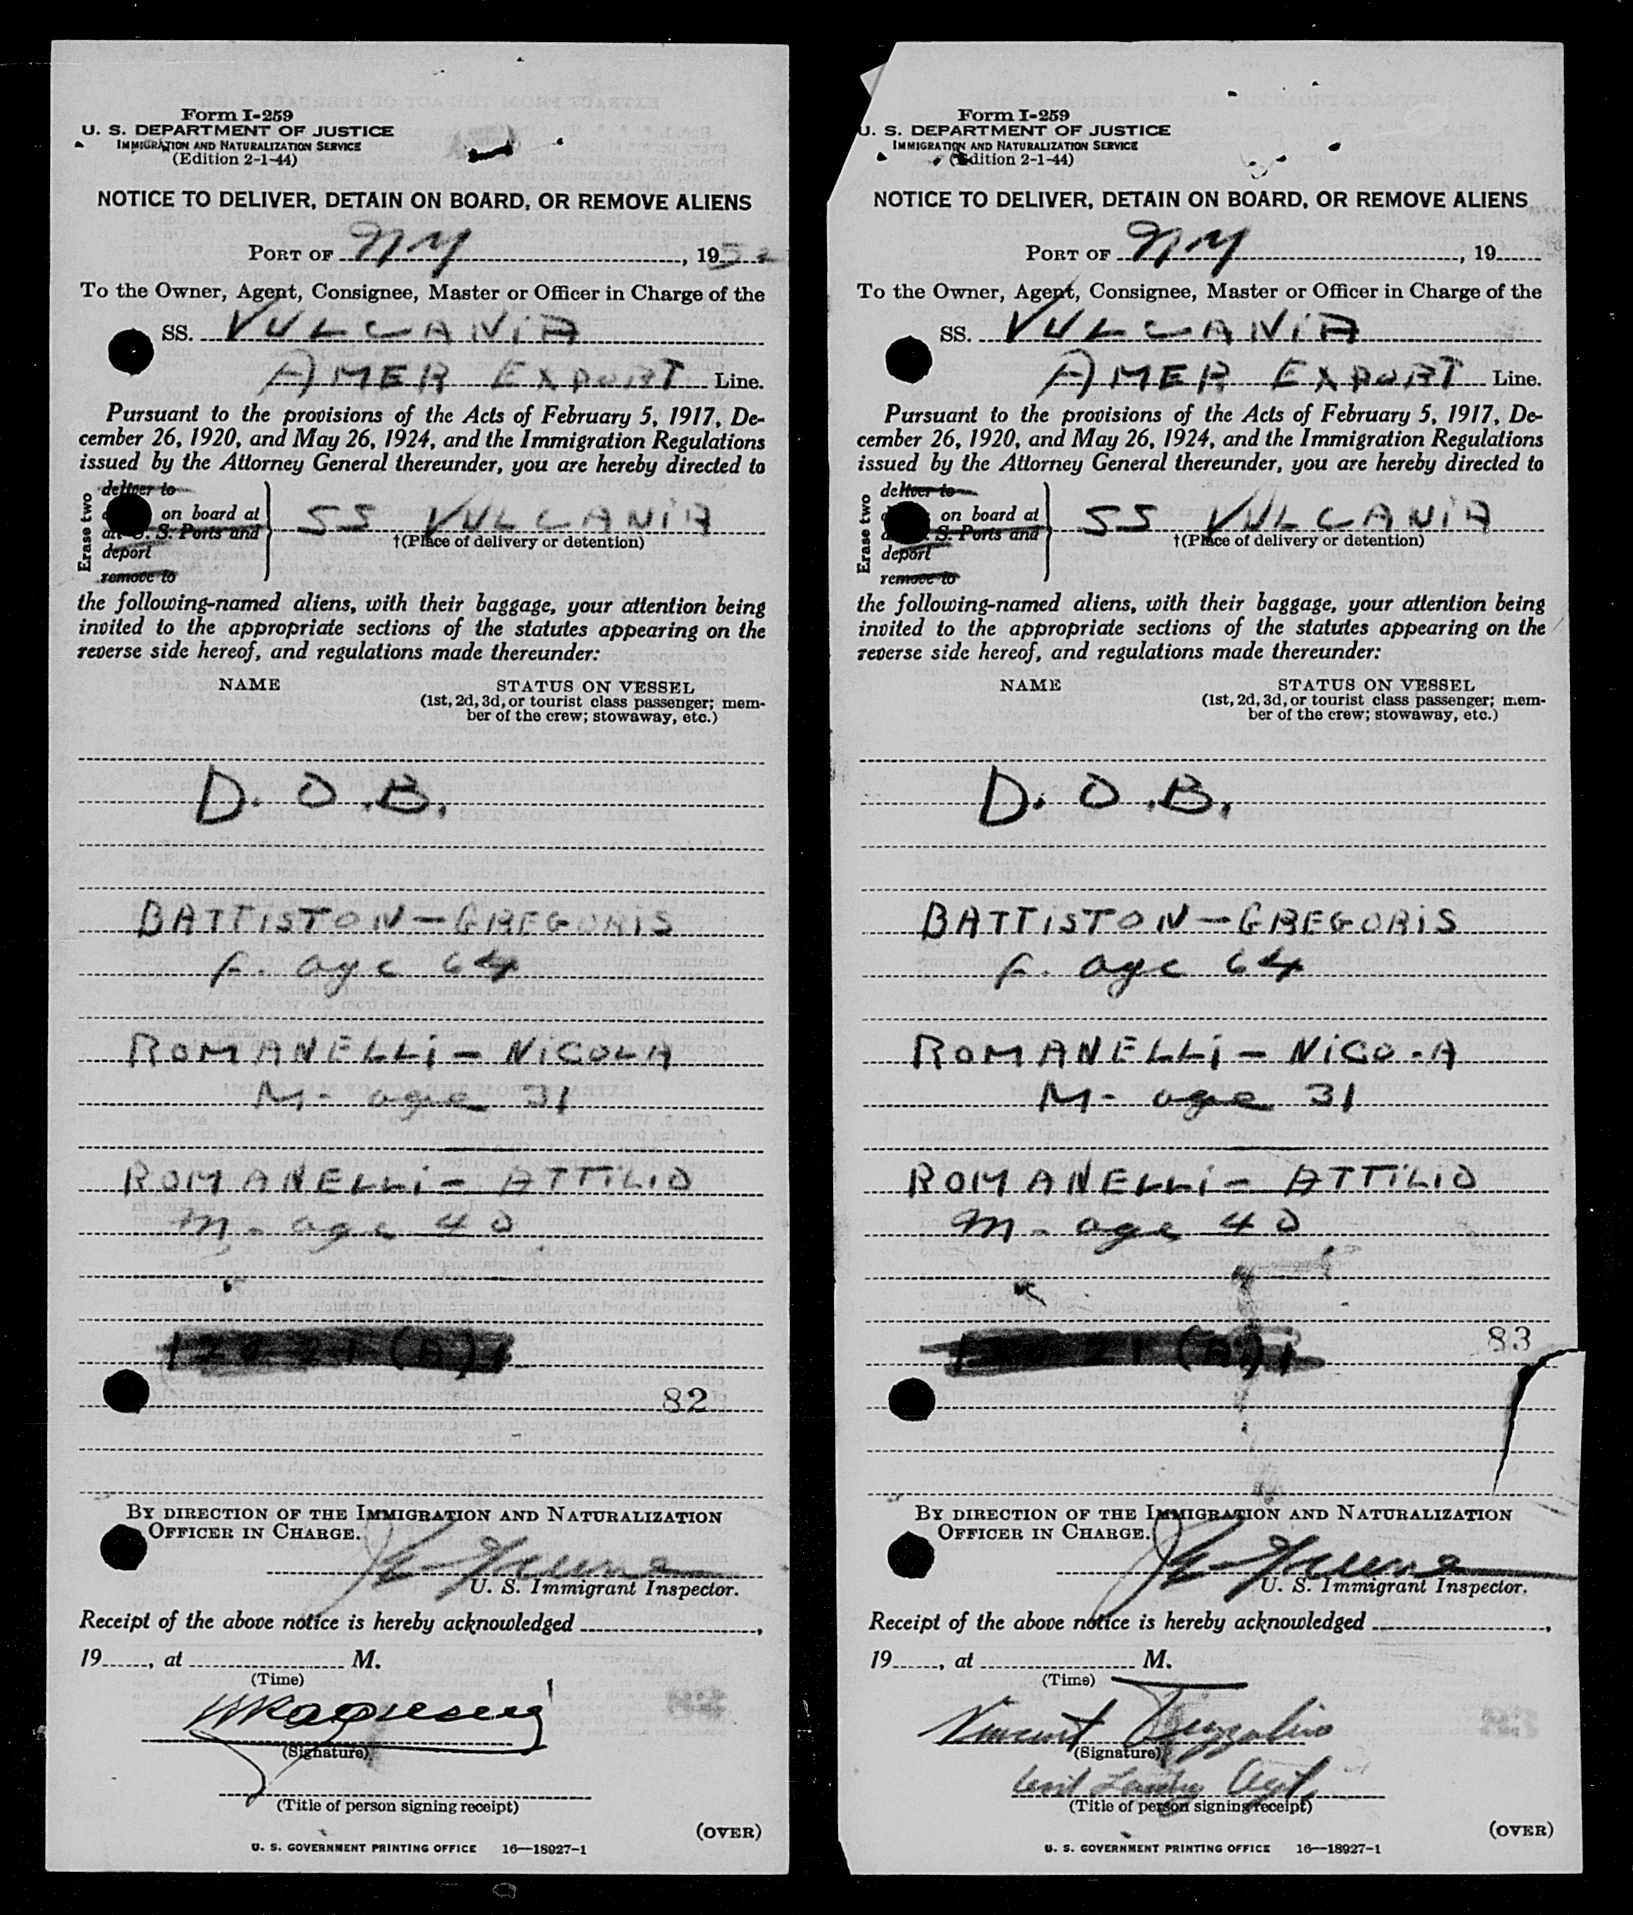 Form I-259
U. S. DEPARTMENT OF JUSTICE
IMMIGRATION AND NATURALIZATION SERVICE
(Edition 2-1-44)
NOTICE TO DELIVER, DETAIN ON BOARD, OR REMOVE ALIENS
PORT OF NY, 195
To the Owner, Agent, Consignee, Master or Officer in Charge of the
SS. VULCANIA
AMER EXPORT Line.
Pursuant to the provisions of the Acts of February 5, 1917, De-
cember 26, 1920, and May 26, 1924, and the Immigration Regulations
issued by the Attorney General thereunder, you are hereby directed to
Erase two
deliver to
on board at
S. Ports and
deport
remove to
SS VULCANIA
†(Place of delivery or detention)
the following-named aliens, with their baggage, your attention being
invited to the appropriate sections of the statutes appearing on the
reverse side hereof, and regulations made thereunder:
NAME STATUS ON VESSEL
(1st, 2d, 3d, or tourist class passenger; mem-
ber of the crew; stowaway, etc.)
D. O. B.
BATTISTON - GREGORIS
F. age 64
ROMANELLI - NICOLA
M - age 31
ROMANELLI - ATTILIO
M - age 40
82
BY DIRECTION OF THE IMMIGRATION AND NATURALIZATION
OFFICER IN CHARGE.
U. S. Immigrant Inspector.
Receipt of the above notice is hereby acknowledged ,
19 , at M.
(Time)
(Signature)
(Title of person signing receipt)
(OVER)
U. S. GOVERNMENT PRINTING OFFICE 16—18927-1
Form I-259
U. S. DEPARTMENT OF JUSTICE
IMMIGRATION AND NATURALIZATION SERVICE
(Edition 2-1-44)
NOTICE TO DELIVER, DETAIN ON BOARD, OR REMOVE ALIENS
PORT OF NY, 19
To the Owner, Agent, Consignee, Master or Officer in Charge of the
SS. VULCANIA
AMER EXPORT Line.
Pursuant to the provisions of the Acts of February 5, 1917, De-
cember 26, 1920, and May 26, 1924, and the Immigration Regulations
issued by the Attorney General thereunder, you are hereby directed to
Erase two
deliver to
on board at
S. Ports and
deport
remove to
SS VULCANIA
†(Place of delivery or detention)
the following-named aliens, with their baggage, your attention being
invited to the appropriate sections of the statutes appearing on the
reverse side hereof, and regulations made thereunder:
NAME STATUS ON VESSEL
(1st, 2d, 3d, or tourist class passenger; mem-
ber of the crew; stowaway, etc.)
D. O. B.
BATTISTON - GREGORIS
F. age 64
ROMANELLI - NICO-A
M - age 31
ROMANELLI - ATTILIO
M - age 40
83
BY DIRECTION OF THE IMMIGRATION AND NATURALIZATION
OFFICER IN CHARGE.
U. S. Immigrant Inspector.
Receipt of the above notice is hereby acknowledged ,
19 , at M.
(Time)
Vincent
(Signature)
(Title of person signing receipt)
(OVER)
U. S. GOVERNMENT PRINTING OFFICE 16—18927-1